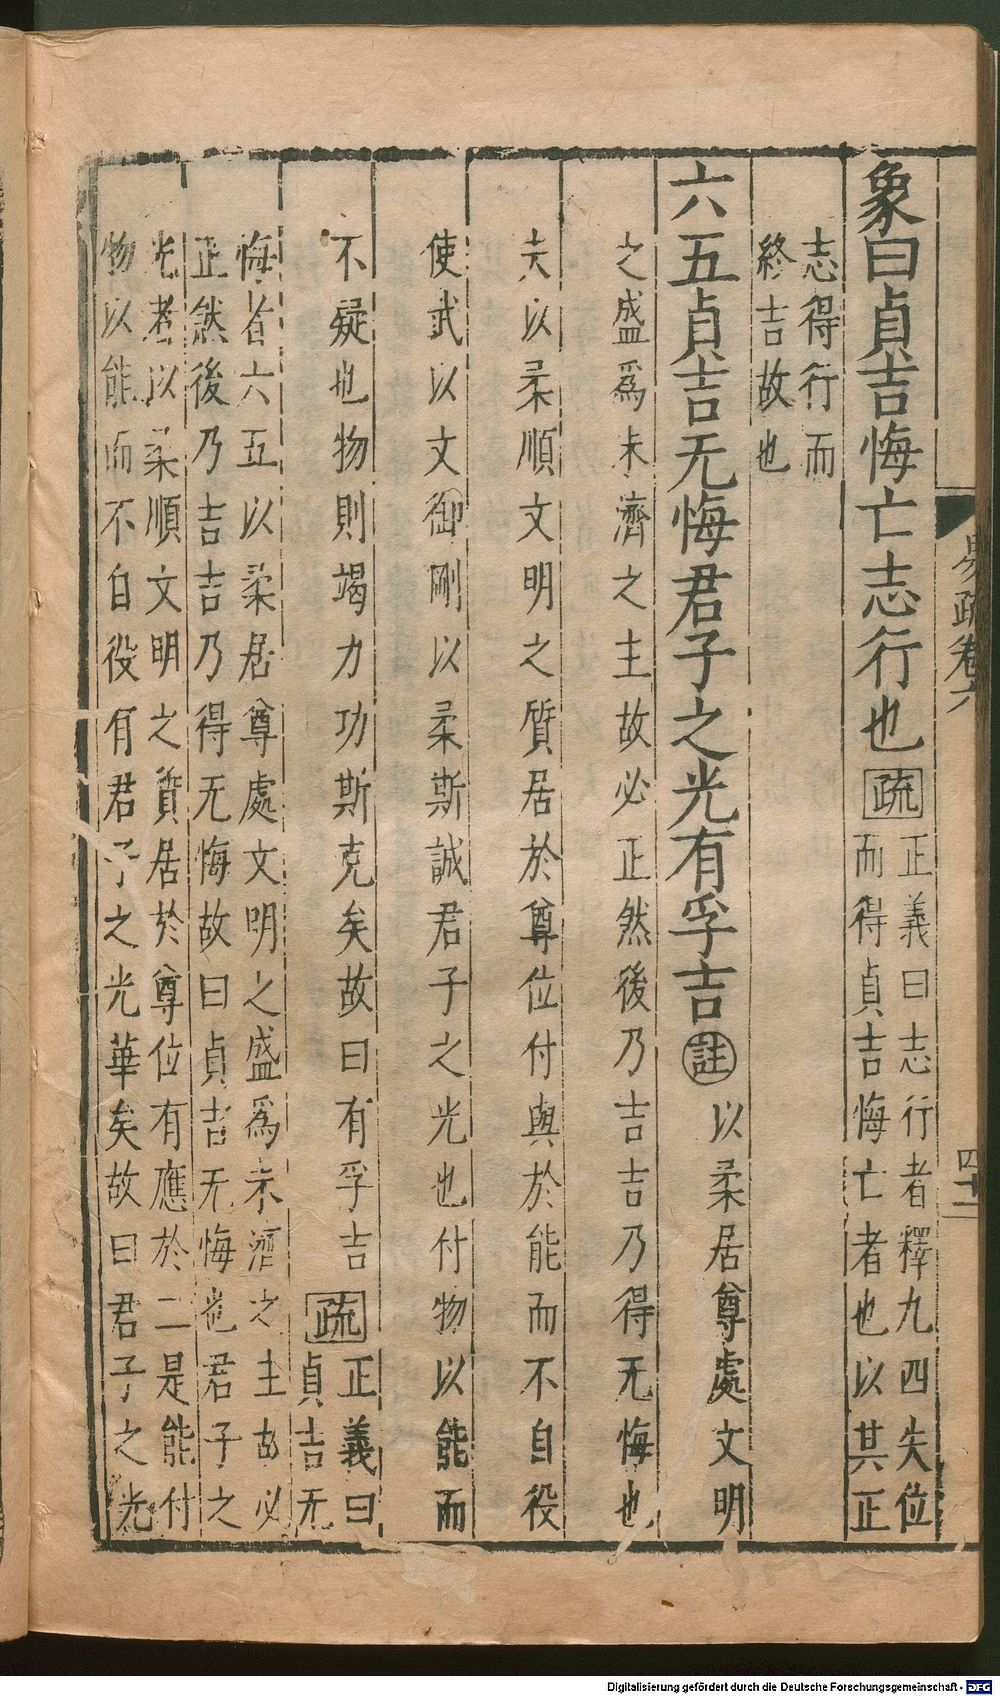 易疏卷六
四十一
象曰貞吉悔亡志行也疏
正義曰志行者釋九四失位
而得貞吉悔亡者也以其正
志得行而
終吉故也
六五貞吉无悔君子之光有孚吉註以柔居尊處文明
之盛爲未濟之主故必正然後乃吉吉乃得无悔也
夫以柔順文明之質居於尊位付與於能而不自役
使武以文御剛以柔斯誠君子之光也付物以能而
不疑也物則竭力功斯克矣故曰有孚吉疏
正義曰
貞吉无
悔者六五以柔居尊處文明之盛爲未濟之主故必
正然後乃吉吉乃得无悔故曰貞吉无悔也君子之
光者以柔順文明之質居於尊位有應於二是能付
物以能而不自役有君子之光華矣故曰君子之光
Digitalisierung gefördert durch die Deutsche Forschungsgemeinschaft - DFG